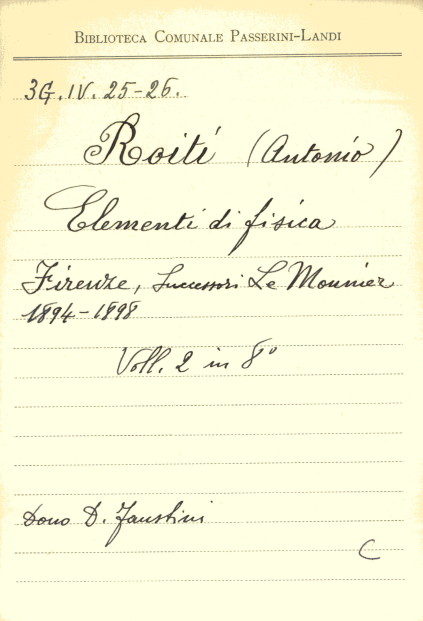 BIBLIOTECA COMUNALE PASSERINI-LANDI
3G. IV. 25-26.
Roiti (Antonio)
Elementi di fisica
Firenze, Successori Le Monnier
1894-1898
Voll. 2 in 8°
Dono D. Faustini
C